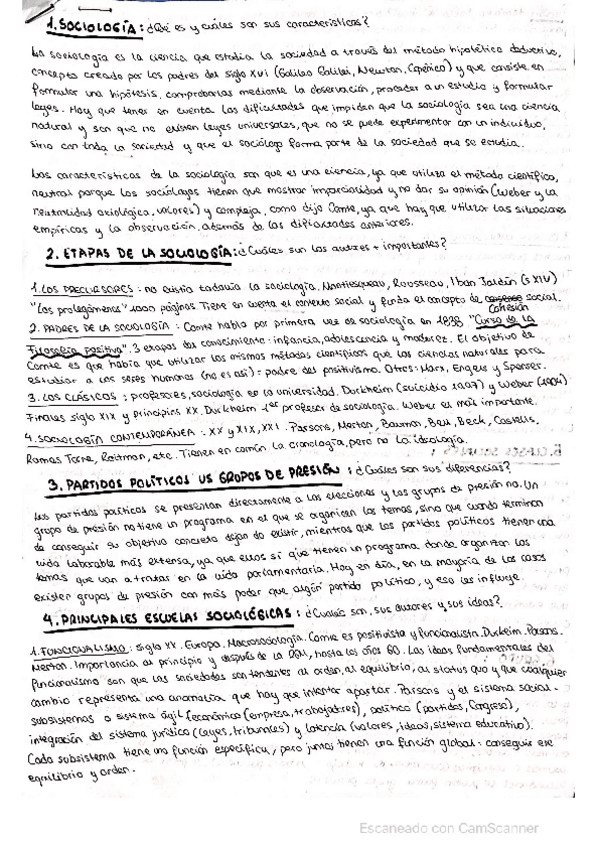 1. SOCIOLOGÍA: ¿Qué es y cuáles son sus características?
La sociología es la ciencia que estudia la sociedad a través del método hipotético deductivo,
concepto creado por los padres del siglo XVI (Galileo Galilei, Newton, Copérnico) y que consiste en
formular una hipótesis, comprobarlas mediante la observación, proceder a un estudio y formular
leyes. Hay que tener en cuenta las dificultades que impiden que la sociología sea una ciencia
natural y son que no existen leyes universales, que no se puede experimentar con un individuo,
sino con toda la sociedad y que el sociólogo forma parte de la sociedad que se estudia.
Las características de la sociología son que es una ciencia, ya que utiliza el método científico,
neutral porque los sociólogos tienen que mostrar imparcialidad y no dar su opinión (Weber y la
neutralidad axiológica, valores) y compleja, como dijo Comte, ya que hay que utilizar las situaciones
empíricas y la observación, además de las dificultades anteriores.
2. ETAPAS DE LA SOCIOLOGÍA: ¿Cuáles son los autores + importantes?
1. LOS PRECURSORES: no existía todavía la sociología. Montesquieau, Rousseau, Iban Jaldún (s XIV)
"Los prolegómenos" 1000 páginas. Tiene en cuenta el contexto social y funda el concepto de cohesión social.
2. PADRES DE LA SOCIOLOGÍA: Comte habló por primera vez de sociología en 1838 "Curso de la
Filosofía positiva". 3 etapas del conocimiento: infancia, adolescencia y madurez. El objetivo de
Comte es que había que utilizar los mismos métodos científicos que las ciencias naturales para
estudiar a los seres humanos (no es así) = padre del positivismo. Otros: Marx, Engels y Spenser.
3. LOS CLÁSICOS: profesores, sociología en la universidad. Durkheim (suicidio 1997) y Weber (1904)
Finales siglo XIX y principios XX. Durkheim 1er profesor de sociología. Weber el más importante.
4. SOCIOLOGÍA CONTEMPORÁNEA: XX y XIX, XXI. Parsons, Merton, Bauman, Bell, Beck, Castells,
Ramos Torre, Roitman, etc. Tienen en común la cronología, pero no la ideología.
3. PARTIDOS POLÍTICOS VS GRUPOS DE PRESIÓN: ¿Cuáles son sus diferencias?
Los partidos políticos se presentan directamente a las elecciones y los grupos de presión no. Un
grupo de presión no tiene un programa en el que se organicen los temas, sino que cuando terminan
de conseguir su objetivo concreto dejan de existir, mientras que los partidos políticos tienen una
vida laborable más extensa, ya que ellos sí que tienen un programa donde organizan los
temas que van a tratar en la vida parlamentaria. Hoy en día, en la mayoría de los casos
existen grupos de presión con más poder que algún partido político, y eso les influye.
4. PRINCIPALES ESCUELAS SOCIOLÓGICAS: ¿Cuáles son, sus autores y sus ideas?
1. FUNCIONALISMO: siglo XX. Europa. Macrosociología. Comte es positivista y funcionalista. Durkeim. Parsons.
Merton. Importancia al principio y después de la 2GM, hasta los años 60. Las ideas fundamentales del
funcionalismo son que las sociedades son tendentes al orden, al equilibrio, al status quo y que cualquier
cambio representa una anomalía que hay que intentar apartar. Parsons y el sistema social.
subsistemas o sistema ágil [económico (empresa, trabajadores), política (partidos, Congreso),
integración del sistema jurídico (leyes, tribunales) y latencia (valores, ideas, sistema educativo).
Cada subsistema tiene una función específica, pero juntos tienen una función global: conseguir ese
equilibrio y orden.
Escaneado con CamScanner